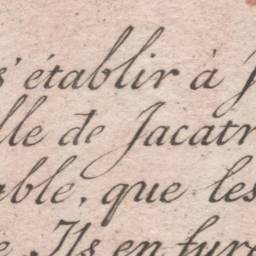 s'établir à J
lle de Jacatr
able, que les
e. Ils en fure